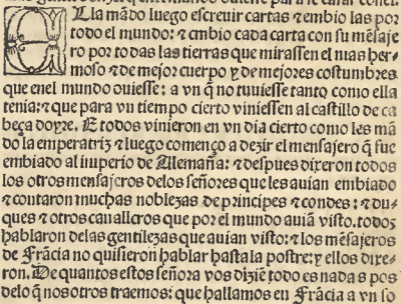 Ella mãdo luego escreuir cartas ⁊ embio las por
todo el mundo: ⁊ embio cada carta con su mẽsaje
ro por todas las tierras que mirassen el mas her-
moso ⁊ de mejor cuerpo y de mejores costumbres
que enel mundo ouiesse: a vn q̃ no tuuiesse tanto como ella
tenia: ⁊ que para vn tiempo cierto viniessen al castillo de ca
beça doyre. E todos vinieron en vn dia cierto como les mã
do la emperatriz ⁊ luego començo a dezir el mensajero q̃ fue
embiado al imperio de Allemaña: ⁊ despues dixeron todos
los otros mensajeros delos señores que les auian embiado
⁊ contaron muchas noblezas de principes ⁊ condes: ⁊ du-
ques ⁊ otros caualleros que por el mundo auiã visto. todos
hablaron delas gentilezas que auian visto: ⁊ los mẽsajeros
de Frãcia no quisieron hablar hasta la postre: y ellos dixe-
ron. De quantos estos señora vos dizẽ todo es nada s pos
delo q̃ nosotros traemos: que hallamos eu Frãcia a vn so